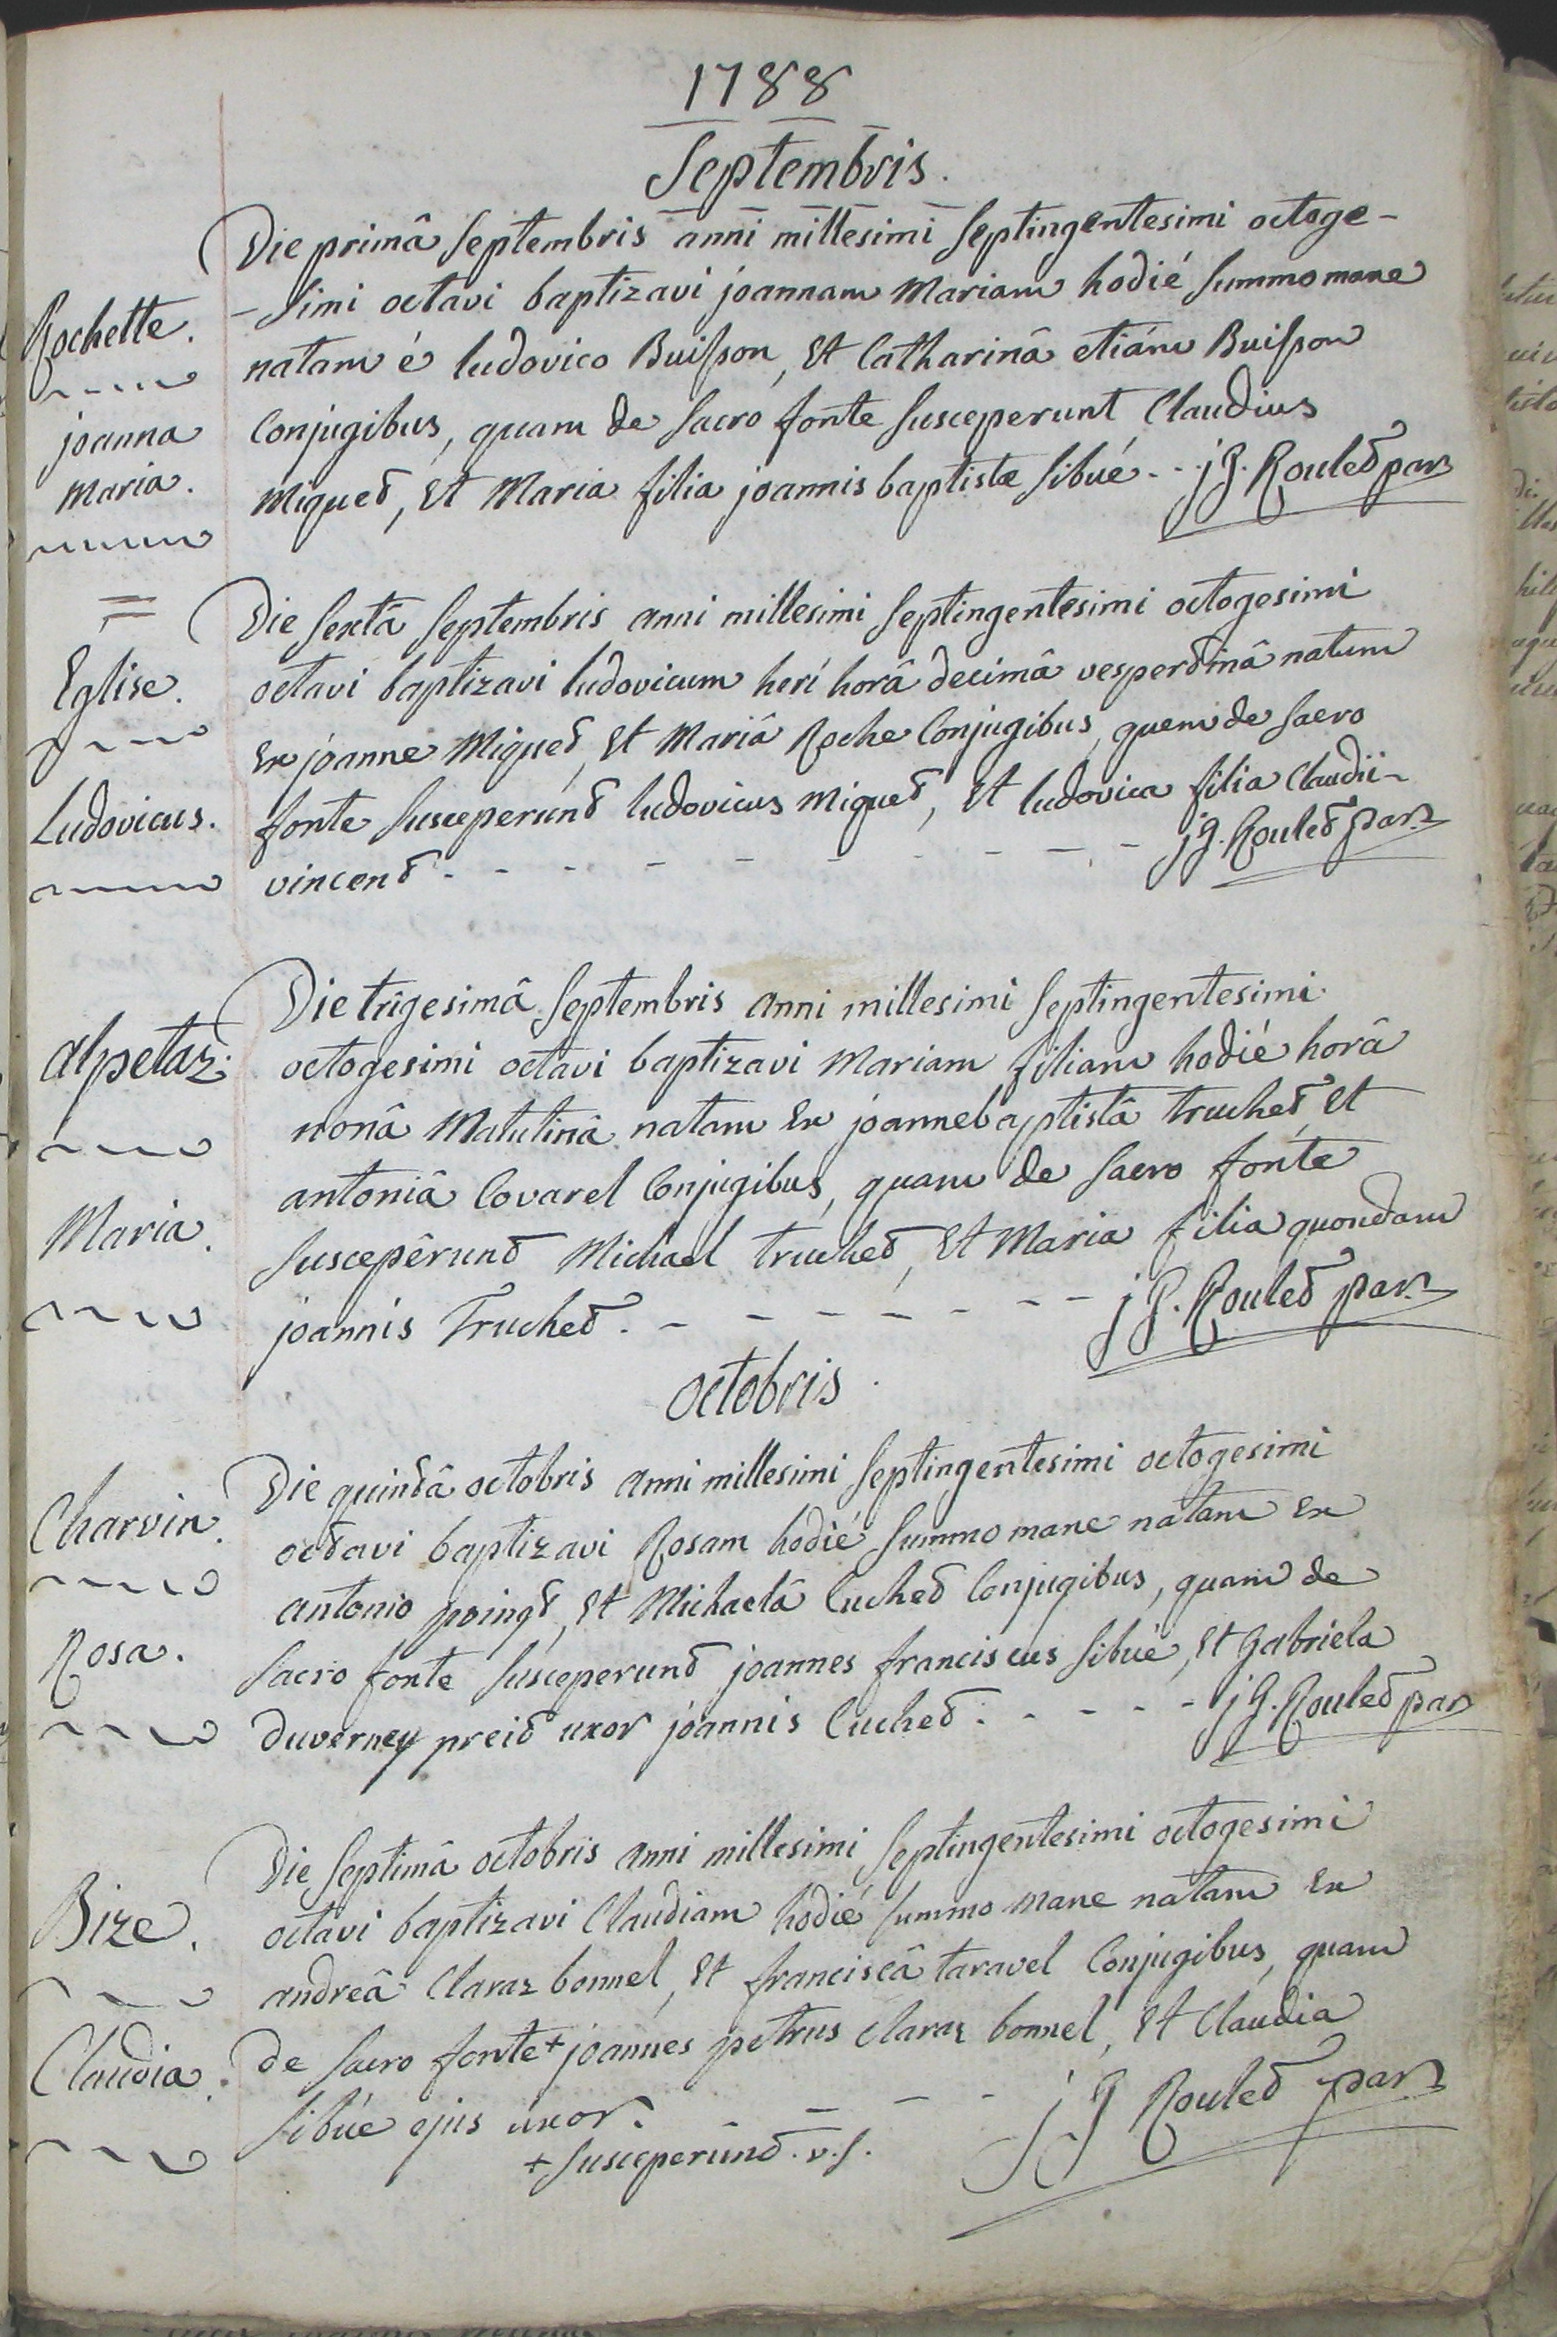 1788
Septembris.
Rochette.
joanna
maria.
Die primâ Septembris anni millesimi Septingentesimi octoge-
-simi octavi baptizavi joannam Mariam hodié Summo mane
natam é ludovico Buisson, Et Catharinâ etiám Buisson
Conjugibus, quam de Sacro fonte Susceperunt Claudius
Miquet, Et Maria filia joannis baptistæ Sibué - - j G. Roulet par
Eglise.
Ludovicus.
Die Sextâ Septembris anni millesimi Septingentesimi octogesimi
octavi baptizavi ludovicum herí horâ decimâ vespertinâ natum
Ex joanne Miquet, Et Mariâ Roche Conjugibus, quem de Sacro
fonte Susceperunt ludovicus Miquet, Et ludovica filia Claudii
vincent - - - - - - - - - - j G. Roulet par.
alpetaz.
Maria.
Die trigesimâ Septembris anni millesimi Septingentesimi
octogesimi octavi baptizavi Mariam filiam hodié horâ
nonâ Matutinâ natam Ex joannebaptistâ truchet, Et
antoniâ Covarel Conjugibus, quam de Sacro fonte
Suscepêrunt Michael truchet, Et Maria filia quondam
joannis Truchet. - - - - - - - j G. Roulet par.
octobris.
Charvin.
Rosa.
Die quintâ octobris anni millesimi Septingentesimi octogesimi
octavi baptizavi Rosam hodié Summo mane natam Ex
antonio poingt, Et Michaelâ Cuchet Conjugibus, quam de
Sacro fonte Susceperunt joannes franciscus Sibué, Et Gabriela
duverney preit uxor joannis Cuchet. - - - - j G. Roulet par
Bize.
Claudia.
Die Septimâ octobris anni millesimi Septingentesimi octogesimi
octavi baptizavi Claudiam hodié Summo Mane natam Ex
andreâ Claraz bonnel, Et franciscâ taravel Conjugibus, quam
de Sacro fonte + joannes petrus claraz bonnel, Et Claudia
Sibué ejus uxor. - - - - j G Roulet par
+ Susceperunt. v. s.